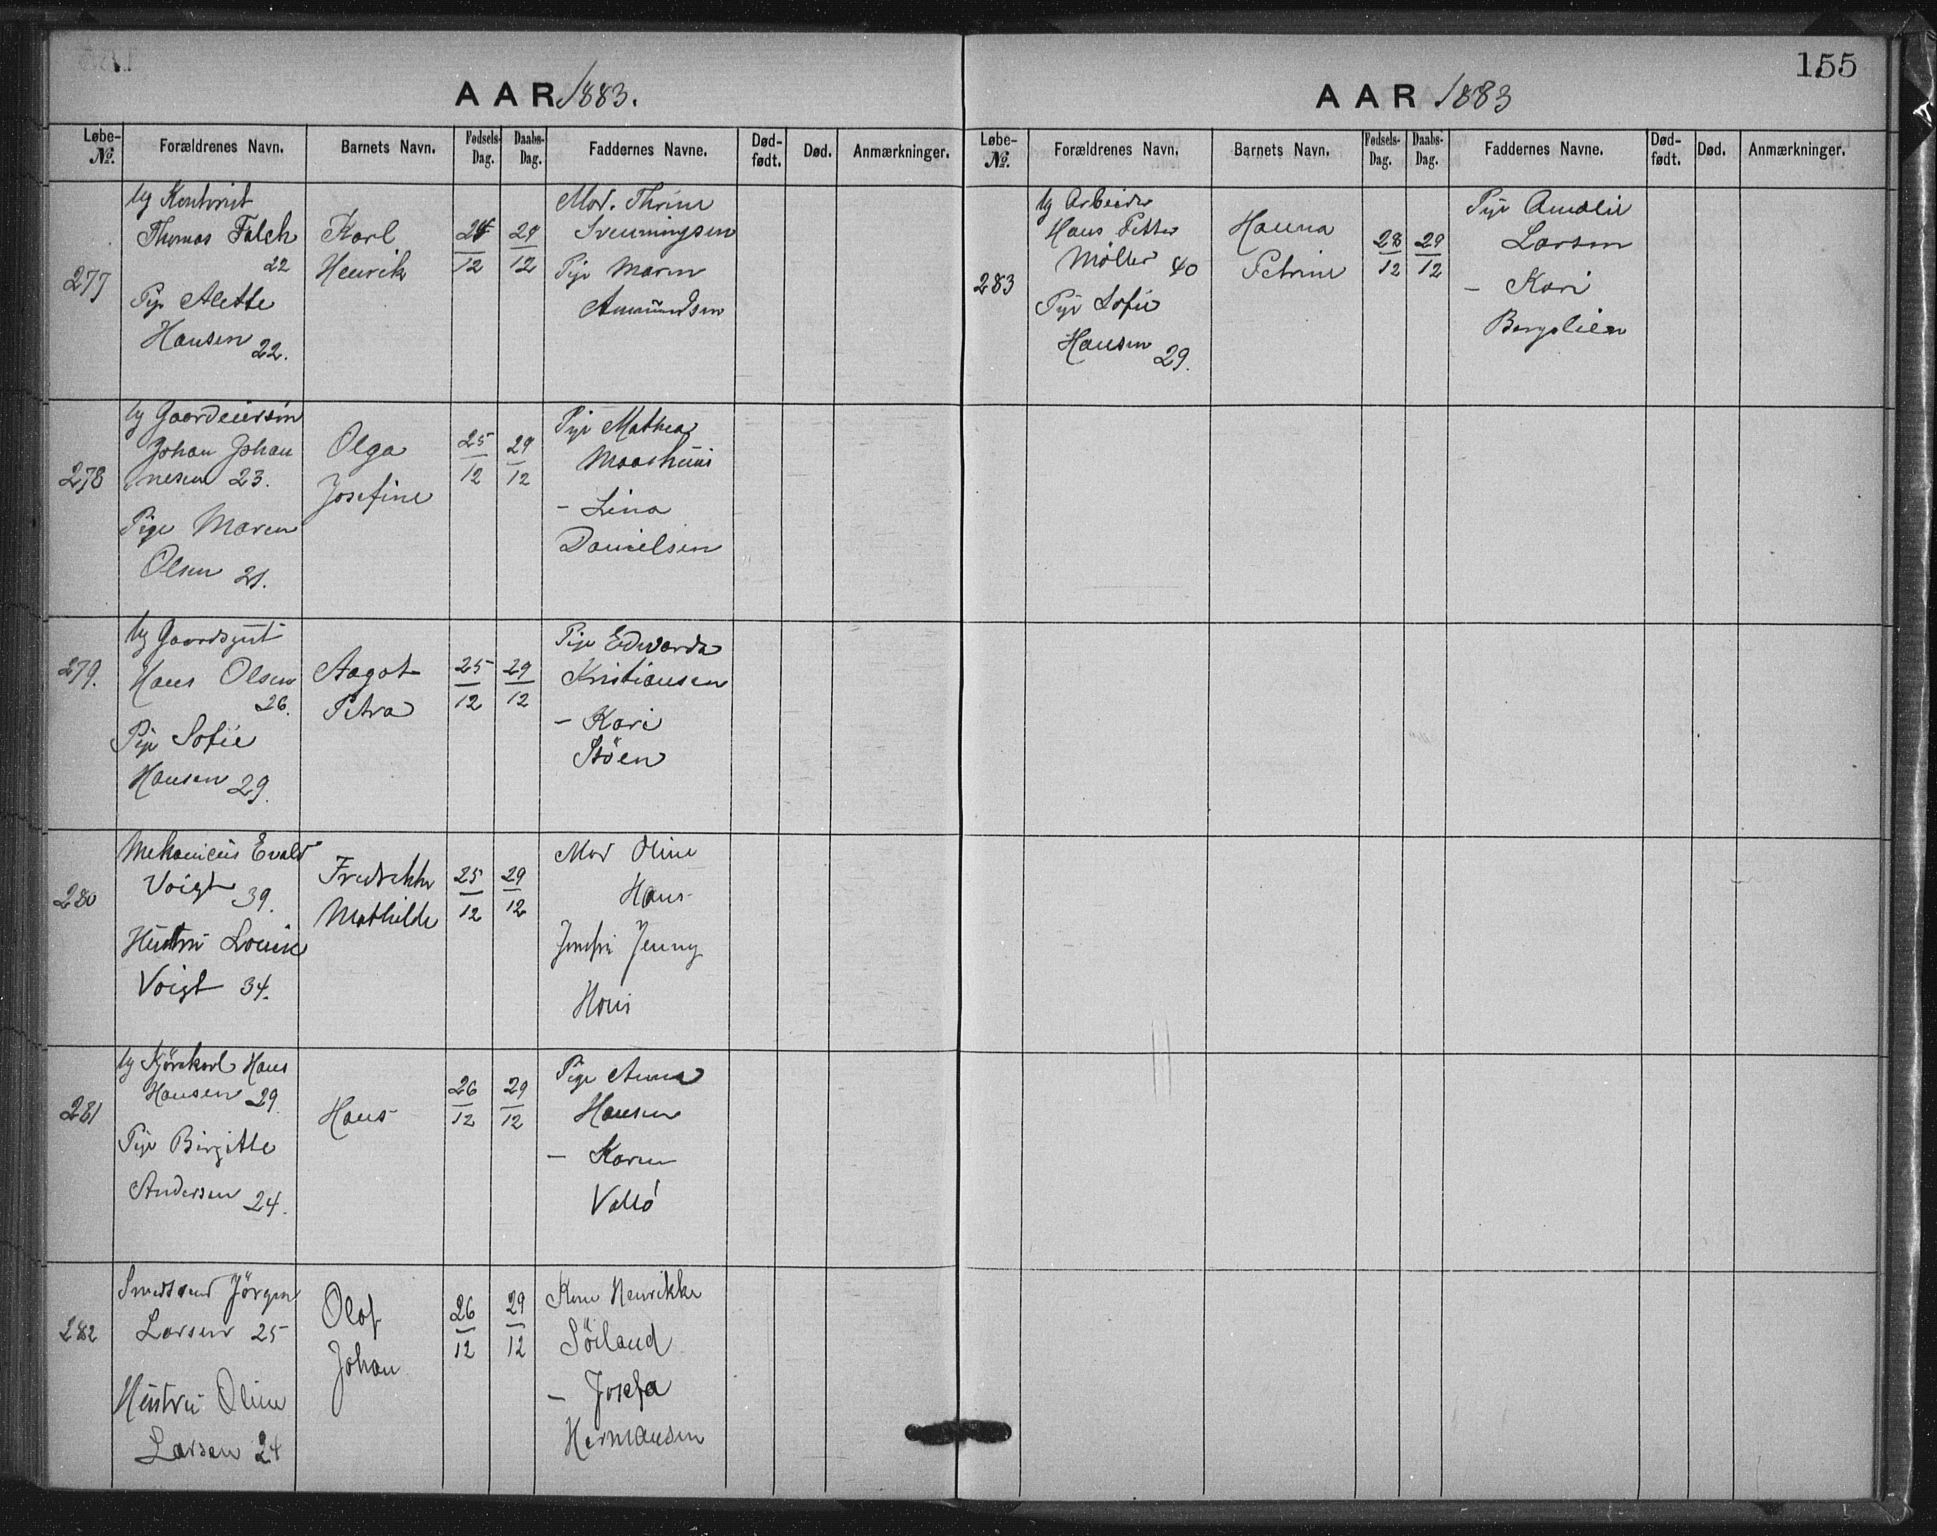 155
AAR 1883.
Løbe-
№.
Forældrenes Navn.
Barnets Navn.
Fødsels-
Dag.
Daabs-
Dag.
Faddernes Navne.
Død-
født.
Død.
Anmærkninger.
277
Ug Kontorist
Thomas Falch
22
Pige Alette
Hansen 22.
Karl
Henrik
24/12
29/12
Mad. Thrine
Svenningsen
Pige Maren
Amundsen
278
Ug Gaardeiersön
Johan Johan
nesen 23.
Pige Maren
Olsen 21.
Olga
Josefine
25/12
29/12
Pige Mathea
- Lina
Danielsen
279.
Ug Gaardsgut
Hans Olsen
26.
Pige Sofie
Hansen 29.
Aagot
Petra
25/12
29/12
Pige Edwarda
Kristiansen
- Kari
Stöen
280
Mekanicus Evald
Voigt 39.
Hustru Louise
Voigt 34.
Fredrikke
Mathilde
25/12
29/12
Mad Oline
Hans
Jomfru Jenny
281
Ug Kjörekarl Hans
Hansen 29.
Pige Birgitte
Andersen 24.
Hans
26/12
29/12
Pige Anna
Hansen
- Karen
Vallö
282
Smedsvend Jörgen
Larsen 25
Hustru Oline
Larsen 24
Olaf
Johan
26/12
29/12
Kone Henrikke
Söiland
- Josefa
Hermansen
AAR 1883
Løbe-
№.
Forældrenes Navn.
Barnets Navn.
Fødsels-
Dag.
Daabs-
Dag.
Faddernes Navne.
Død-
født.
Død.
Anmærkninger.
283
Ug Arbeider
Hans Petter
Møller 40
Pige Sofie
Hansen 29.
Hanna
Petrine
28/12
29/12
Pige Amalie
Larsen
- Kari
Bergslien